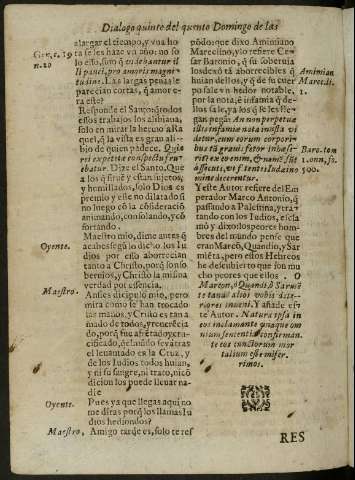 Dialogo quinto del quento Domingo de las
alargar el tiempo, y vna ho
ra se les hace vn año: no so
lo esso, sino q̃ videbantur il
li pauci, præ amoris magni-
tudine. Las largas penas le
parecian cortas, q̃ amor e-
ra este?
Responde el Santo: q̃ todos
essos trabajos los aliviana,
solo en mirar la hermosa Ra
quel, q̃ la vista es gran ali-
bio de quien padece. Quie
vi expetita conspectu frue
batur. Dize el Santo. Que
a los q̃ sirvẽ y estan sujetos,
y humillados, solo Dios es
premio y este no dilatado si
no luego cõ la cõsideraciõ
animando, consolando, y cõ
fortando.
Oyente. Maestro mio, dime antes q̃
acabes segũ lo dicho los Iu
dios por esso aborrecian
tanto a Christo, porq̃ son so
bervios, y Christo la misma
verdad por essencia.
Maestro. Assi es dicipulo mio, pero
mira como se han trocado
las manos, y Cristo es tan a
mado de todos, y reverecia
do, porq̃ fue afrẽtado y cru
cificado, q̃ el mũdo se va tras
el levantado en la Cruz, y
de los Iudios todos huian,
y ni su sangre, ni trato, ni cõ
dicion los puede llevar na-
die
Oyente. Pues ya que llegas aqui no
me diras porq̃ los llamas Iu
dios hediondos?
Maestro, Amigo tarde es, solo te res
põdo que dixo Aminiano
Marcelino, y lo refiere Ce-
sar Baronio, q̃ su sobervia
los dexò tã aborrecibles q̃
huian dellos, y q̃ de su cuer
po sale vn hedor notable,
por la nota, è infamia q̃ de-
llos se la, ya los q̃ se les lle-
gan pegãn. An non perpetuæ
illis infamiæ nota visi
detur, cum eorum corpori-
bus tã gravi fetor inhæse-
rit? ex eo enim,
ascititi, vt fœtentes Iudæi no
mine dicerentur.
Y este Autor refiere del Em
perador Marco Antonio, q̃
passando a Palestina, y tra-
tando con los Iudios, escla
mò y dixo los peores hom-
bres del mundo pense que
eran Marcõ, Quandio, y Sar
mièta, pero estos Hebreos
he descubierto que son mu
cho peores que ellos. O
Marcon, ò Quandi, ò Sarmæ
te tandẽ alios vobis dete-
riores inveni. Y añade es-
te Autor. Natura ipsa in
eos inclamante quaque om
nium sententia confirman-
te eos cunctorum mor-
talium esse miser.
rimos.
Gen, c. 29
n. 20
Aminian
Marcel.li.
1.
Baro. tom
1. ann, fo.
500.
RES